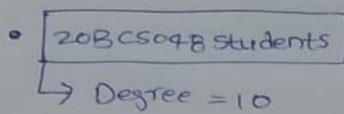 • 20BCS048 Students
↳ Degree = 10